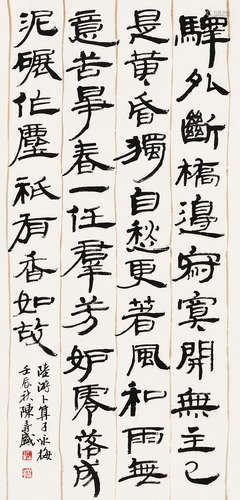 驛外斷橋邊寂寞開無主已
是黃昏獨自愁更著風和雨無
意苦爭春一任羣芳妒零落成
泥碾作塵祇有香如故
陸游卜算子咏梅
壬辰秋陳